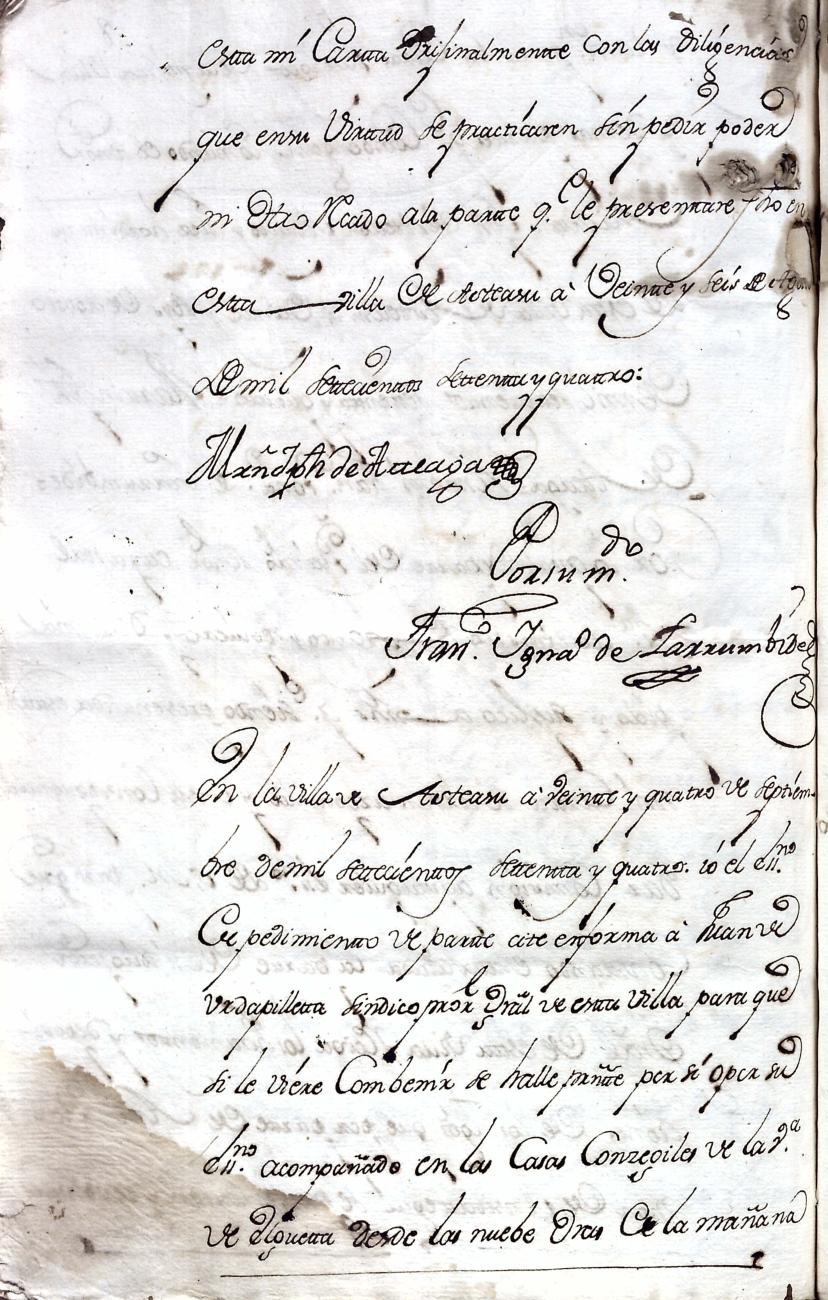 esta mi Carta Orixinalmente con las diligencias
que en su virtud se practicaren sin pedir poder
ni otro Rcado a la parte q. le presentare fho en
esta villa de Asteasu à Veinte y seis de Ago
de mil setecientos setenta y quatro:
Mrñ Jph de Arteaga
Por su mdo.
Franco. Ignao de Larrumbide
En la villa de Asteasu à veinte y quatro de septiem-
bre de mil setecientos setenta y quatro. io el essno.
de pedimiento de parte cite en forma à Juan de
Urdapilleta sindico pror Gral de esta villa para que
si le viere Combenir se halle prnte por si o por su
essno. acompañado en las Casas Conzegiles de la va.
de desde las nuebe oras de la mañana